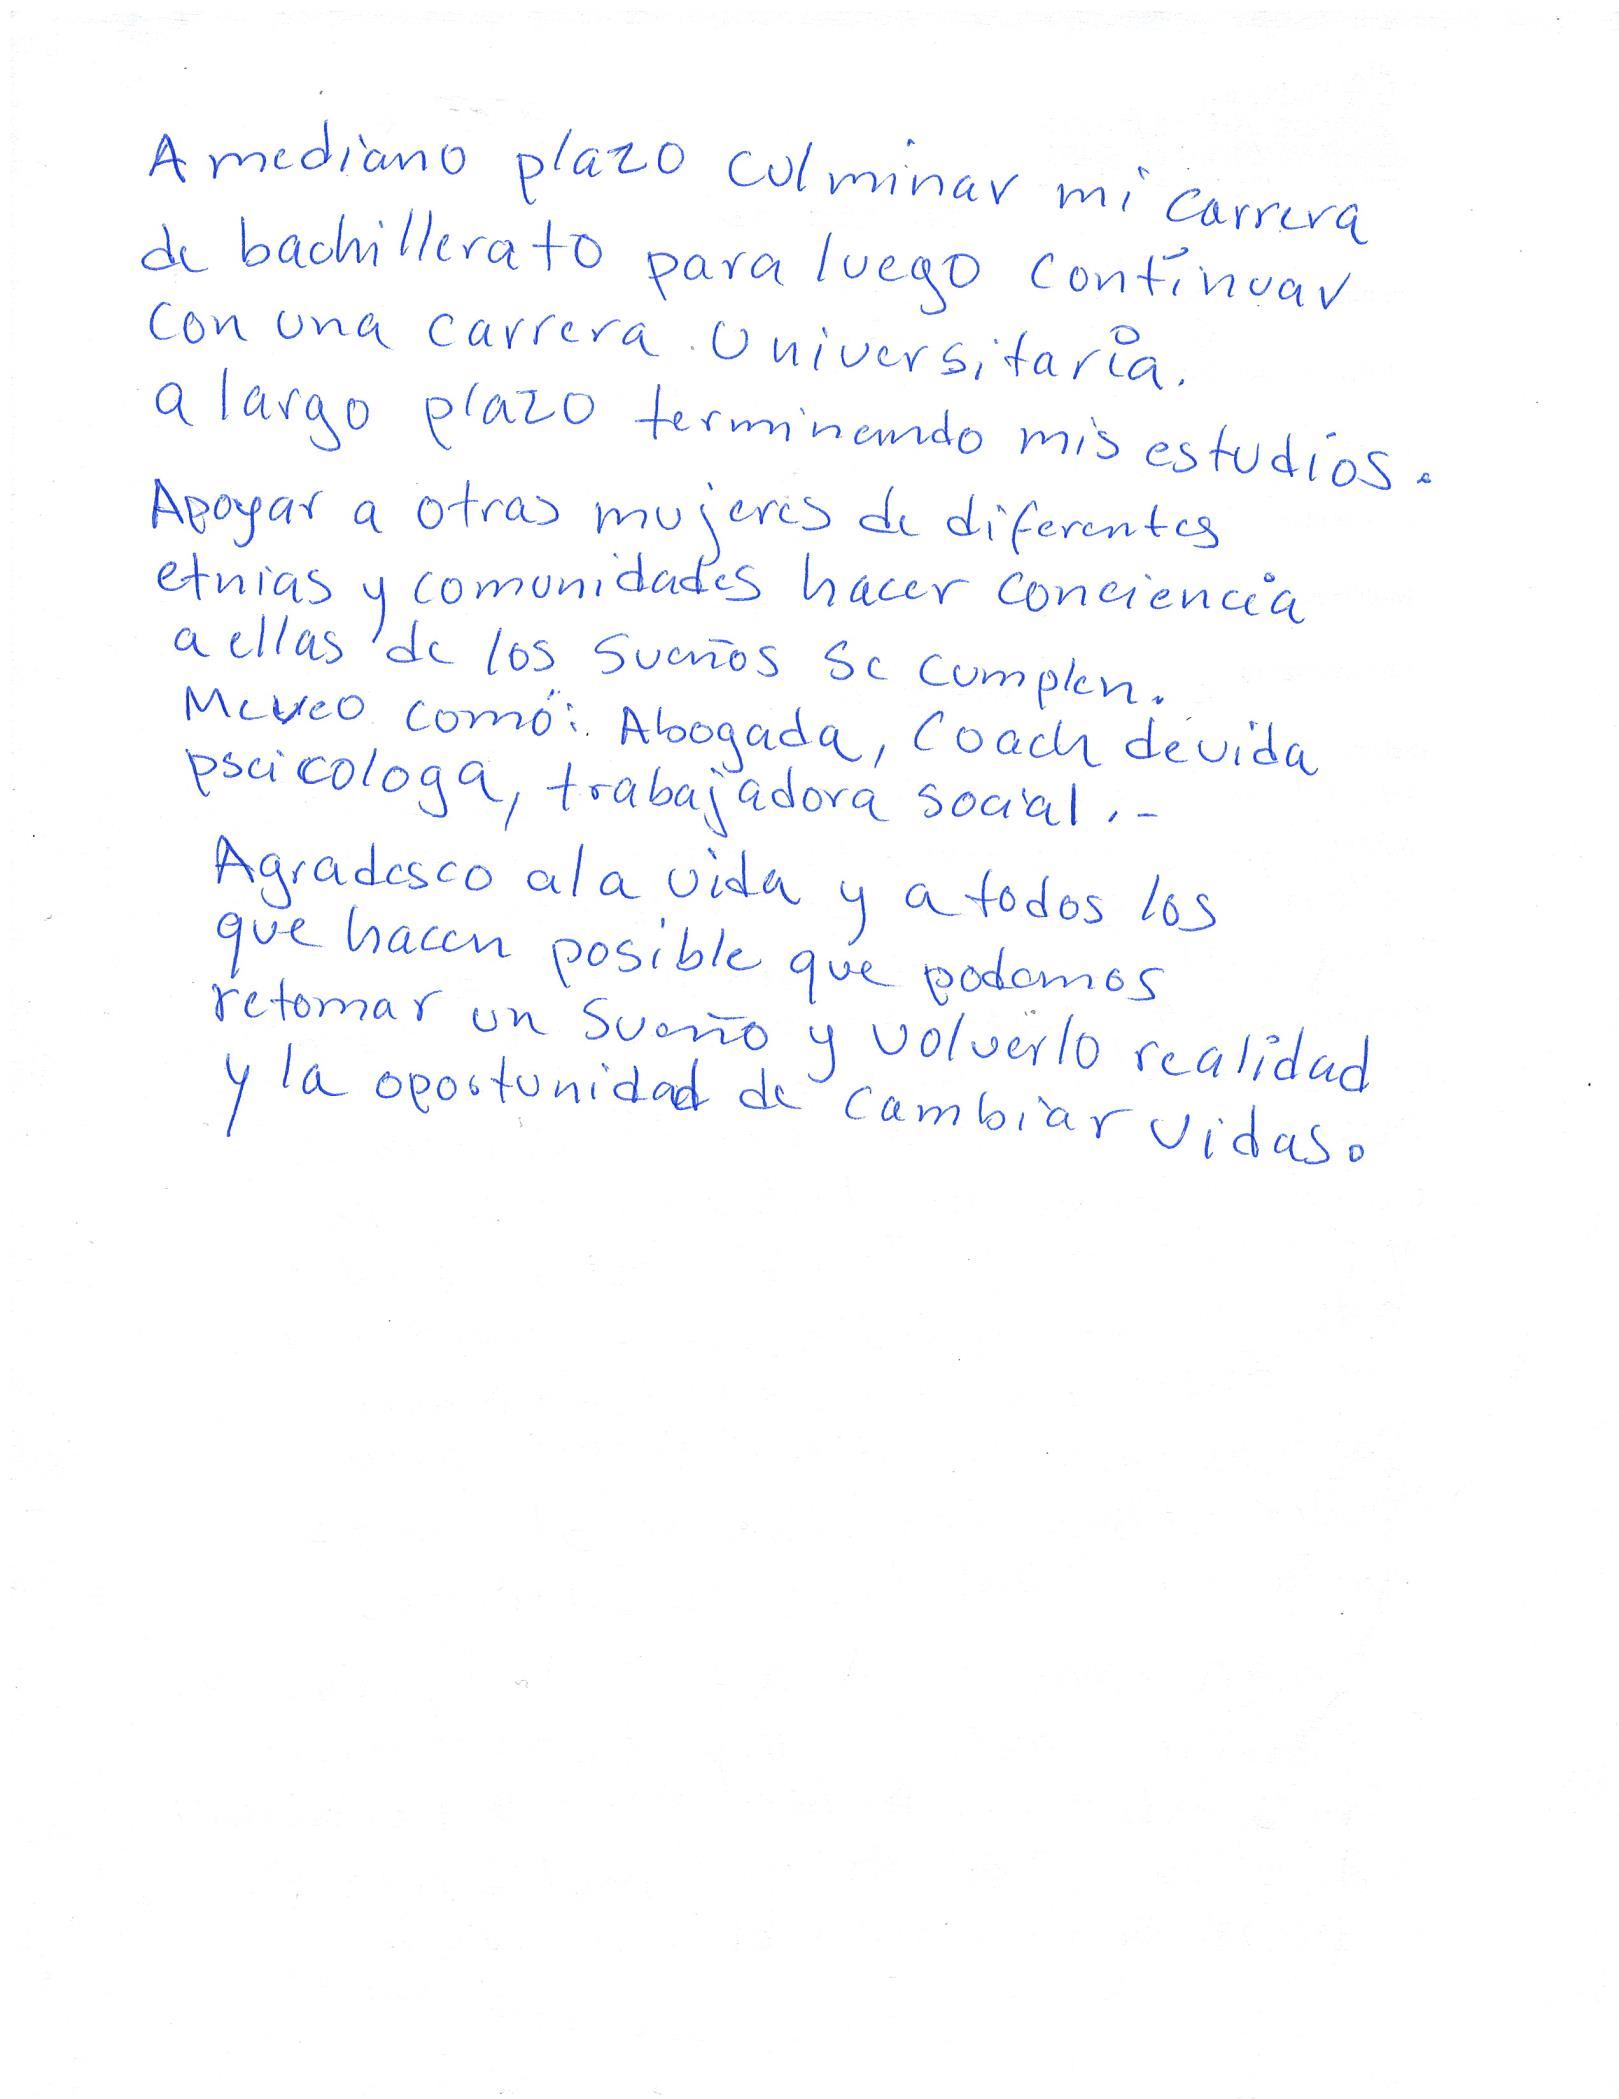 A mediano plazo culminar mi carrera
de bachillerato para luego continuar
con una carrera Universitaria.
a largo plazo terminando mis estudios.
Apoyar a otras mujeres de diferentes
etnias y comunidades hacer conciencia
a ellas de los sueños se cumplen.
Me veo como: Abogada, Coach de vida
pscicologa, trabajadora social.-
Agradesco a la vida y a todos los
que hacen posible que podemos
retomar un sueño y volverlo realidad
y la oportunidad de cambiar vidas.